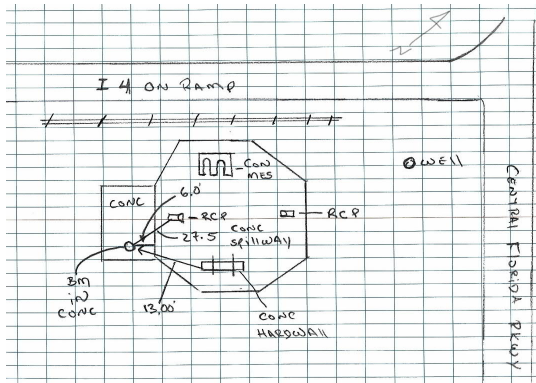 N
I 4 ON RAMP
CON
MES
WELL
CONC
6.0'
RCP
RCP
27.5
CONC
SPILLWAY
BM
IN
CONC
13.00'
CONC
HARDWALL
CENTRAL FLORIDA PKWY